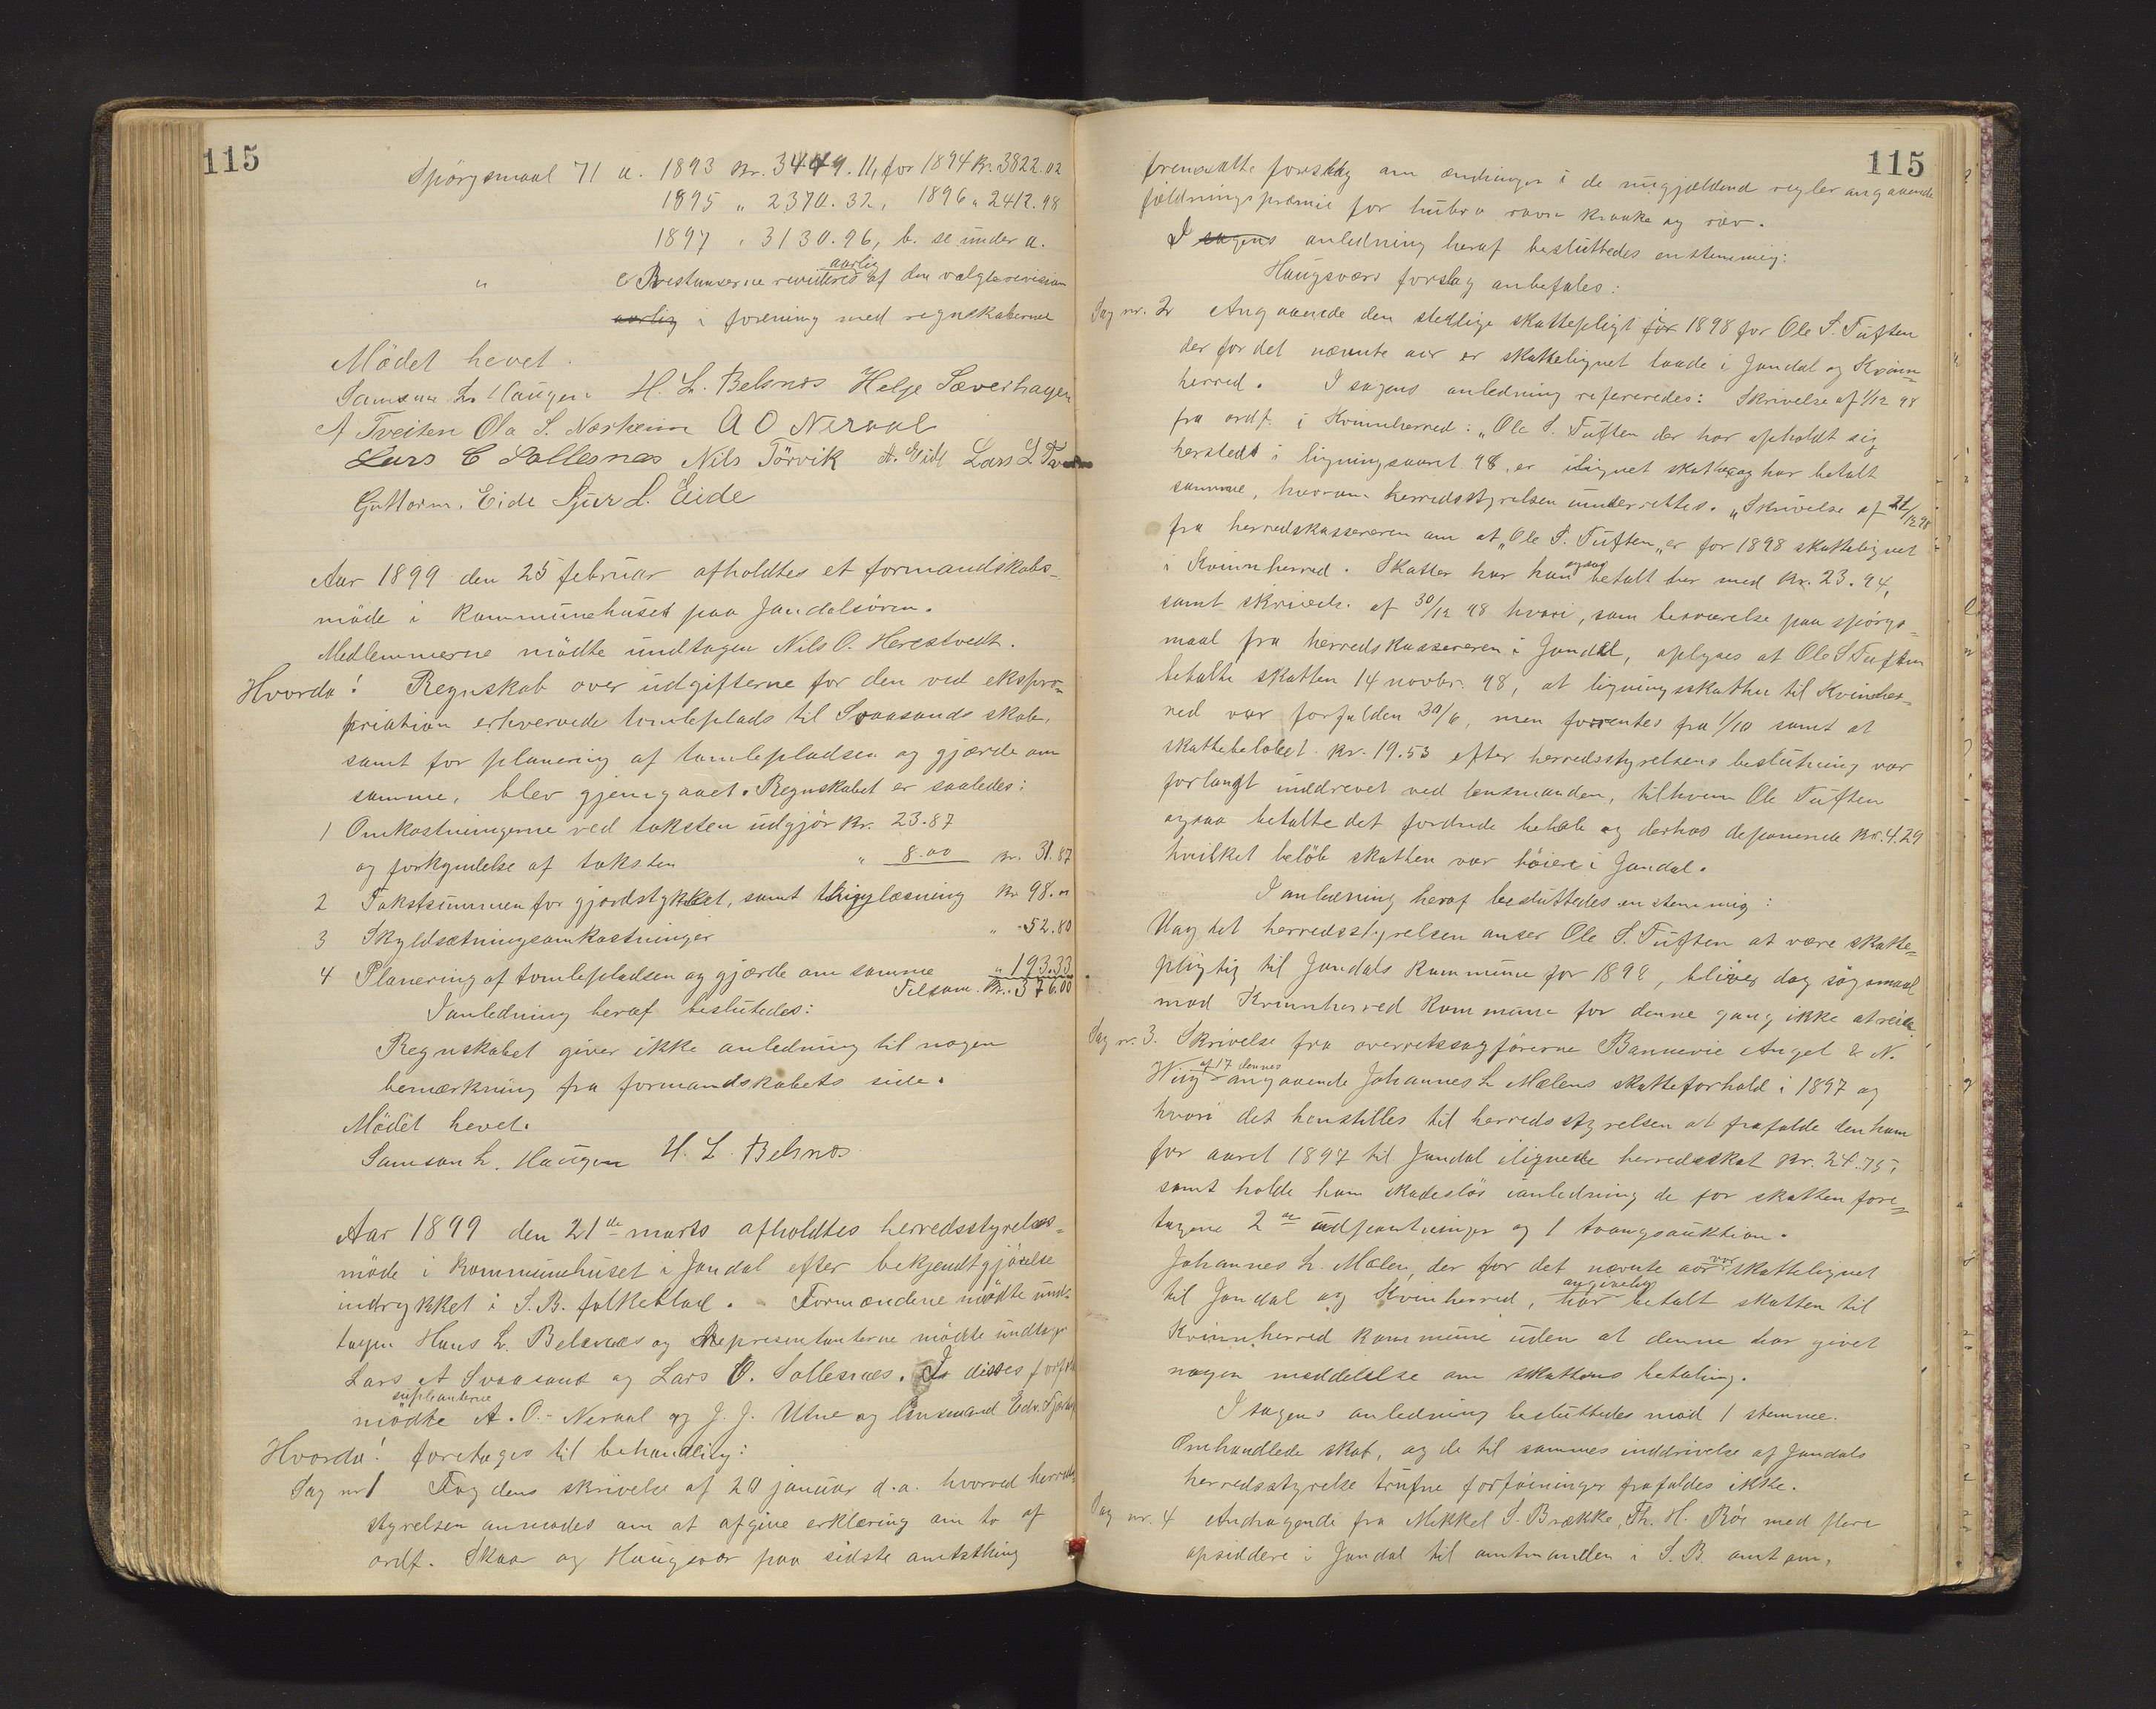 115
Spörgsmaal 71 a. 1893 Kr. 3449.11, for 1894 Kr. 3822.02
1895 " 2370.32, 1896 " 2412.98
1897 " 3130.96, b. se under a.
" c Restanserne revideres aarlig af den valgte revision
aarlig i forening med regnskaberne
Mödet hevet.
Samson L. Haugen H. L. Belsnes Helje Sæverhagen
A Tveiten Ola S. Næsheim A O Neraal
Lars C Sollesnes Nils Törvik A. Eide Lars L.
Guttorm. Eide Sjur L. Eide
Aar 1899 den 25 februar afholdtes et formandskabs-
möde i kommunehuset paa Jondalsören.
Medlemmerne mödte undtagen Nils O. Herestvedt.
Hvorda! Regnskab over udgifterne for den ved ekspro-
priation erhvervede tomteplads til Svaasands skole,
samt for planering af tomtepladsen og gjærde om
samme, blev gjemgaaet. Regnskabet er saaledes:
1 Omkostningerne ved taksten udgjör Kr. 23.87
og forkyndelse af taksten " 8.00 Kr. 31.87
2 Takstsummen for gjordstykket, samt thinglæsning Kr 98.00
3 Skyldsætningsomkostninger " 52.80
4 Planering af tomtepladsen og gjærde om samme " 193.33
Tilsam. Kr. 376.00
I anledning heraf beslutedes:
Regnskabet giver ikke anledning til nogen
bemærkning fra formandskabets side.
Mödet hevet.
Samson L. Haugen H. L. Belsnes
Aar 1899 den 21de marts afholdtes herredsstyrelses-
möde i kommunehuset i Jondal efter bekjendtgjörelse
indrykket i S.B. folkeblad. Formændene mödte und-
tagen Hans L. Belsnes og Representanterne mödte undtagen
Lars A Svaasand og Lars O. Sollesnæs. I disses forfald
mödte suplianterne A. O. Neraal og J. J. Utne og lensmand Edv.
Hvorda! foretages til behandling:
Sag nr 1 Fogdens skrivelse af 20 januar d.a. hvorved herreds-
styrelsen anmodes om at afgive erklæring om to af
ordf. Skaar og Haugsvær paa sidste amtsthing
115
fremsatte forslag om ændringer i de nugjældend regler angaaende
fældningspræmie for hubro ravn kraake og ræv.
I sagens anledning heraf besluttedes enstemmig:
Haugsværs forslag anbefales:
Sag nr. 2 Angaaende den stedlige skattepligt for 1898 for Ole S. Tuften
der for det nævnte aar er skattelignet baade i Jondal og Kvinn-
herred. I sagens anledning refereredes: Skrivelse af 1/12 98
fra ordf. i Kvinnherred: "Ole S. Tuften der har opholdt sig
hersteds i ligningsaaret 98, er ilignet skat og har betalt
samme, hvorom herredsstyrelsen underrettes." Skrivelse af 21/12 98
fra herredskassereren om at "Ole S. Tuften" er for 1898 skattelignet
i Kvinnherred. Skatter har han ogsaa betalt her med Kr. 23.94,
samt skrivels. af 30/12 98 hvori, som besvarelse paa spörgs-
maal fra herredskassereren i Jondal, oplyses at Ole S Tuften
betalte skatten 14 novbr. 98, at ligningsskatten til Kvinher-
red var forfalden 30/6, men forrentes fra 1/10 samt at
skattebelöbet Kr. 19.53 efter herredsstyrelsens beslutning var
forlangt inddrevet ved lensmanden, til hvem Ole Tuften
ogsaa betalte det fordrede belöb og derhos deponerede Kr. 4.29
hvilket belöb skatten var höiere i Jondal.
I anledning heraf besluttedes enstemmig:
Uag det herredsstyrelsen anser Ole S. Tuften at være skatte-
pligtig til Jondals kommune for 1898, bliver dog sögsmaal
mod Kvinnherred kommune for denne gang ikke at reise
Sag nr. 3. Skrivelse fra overretssagförerne Bannevie Angel & N.
Wiig af 17 dennes angaaende Johannes L Mælens skatteforhold i 1897 og
hvori det henstilles til herredsstyrelsen at frafalde den ham
for aaret 1897 til Jondal ilignede herredsskat Kr. 24.75,
samt holde ham skadeslös ianledning de for skatten fore-
tagene 2de udpantninger og 1 tvangsauktion.
Johannes L. Mælen, der for det nævnte aar var skattelignet
til Jondal og Kvinherred, har angivelig betalt skatten til
Kvinnherred kommune uden at denne har givet
nogen meddelelse om skattens betaling.
I sagens anledning besluttedes mod 1 stemme.
Omhandlede skat, og de til sammes inddrivelse af Jondals
herredsstyrelse trufne forföininger frafaldes ikke.
Sag nr. 4 Andragende fra Mikkel S. Brække, Th. H. Röe med flere
opsiddere i Jondal til amtmanden i S.B. amt om,